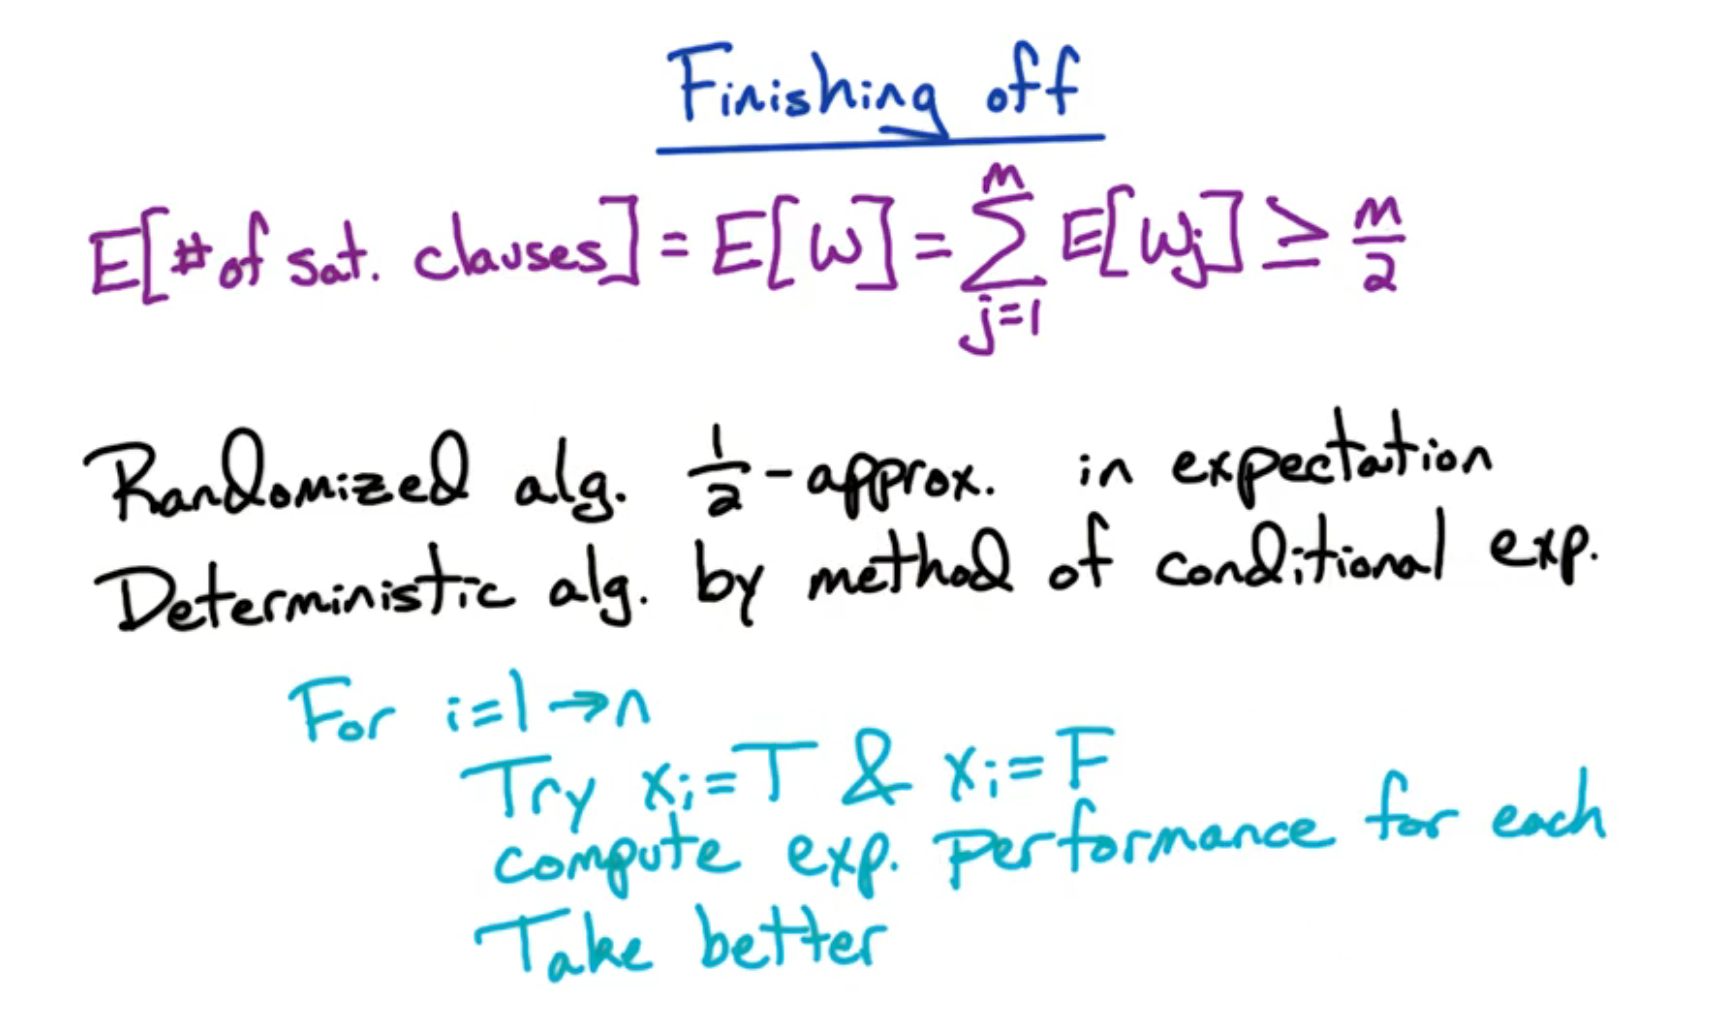 Finishing off
E[# of sat. clauses] = E[W] = \sum_{j=1}^{m} E[W_j] ≥ \frac{m}{2}
Randomized alg. \frac{1}{2}-approx. in expectation
Deterministic alg. by method of conditional exp.
For i=1→n
Try x_i=T & x_i=F
compute exp. performance for each
Take better